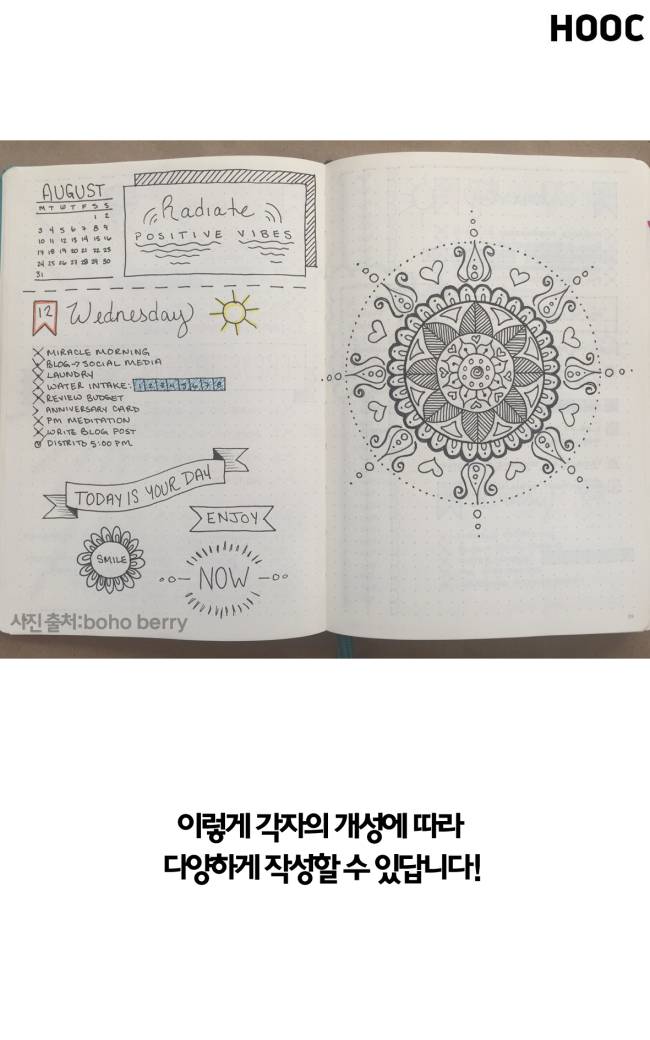 HOOC
AUGUST
M T W T F S S
1 2
3 4 5 6 7 8 9
10 11 12 13 14 15 16
17 18 19 20 21 22 23
24 25 26 27 28 29 30
31
Radiate
POSITIVE VIBES
12 Wednesday
MIRACLE MORNING
BLOG → SOCIAL MEDIA
LAUNDRY
WATER INTAKE: 1 2 3 4 5 6 7 8
REVIEW BUDGET
ANNIVERSARY CARD
PM MEDITATION
WRITE BLOG POST
DISTRITO 5:00 PM
TODAY IS YOUR DAY
ENJOY
SMILE
NOW
사진 출처:boho berry
이렇게 각자의 개성에 따라
다양하게 작성할 수 있답니다!